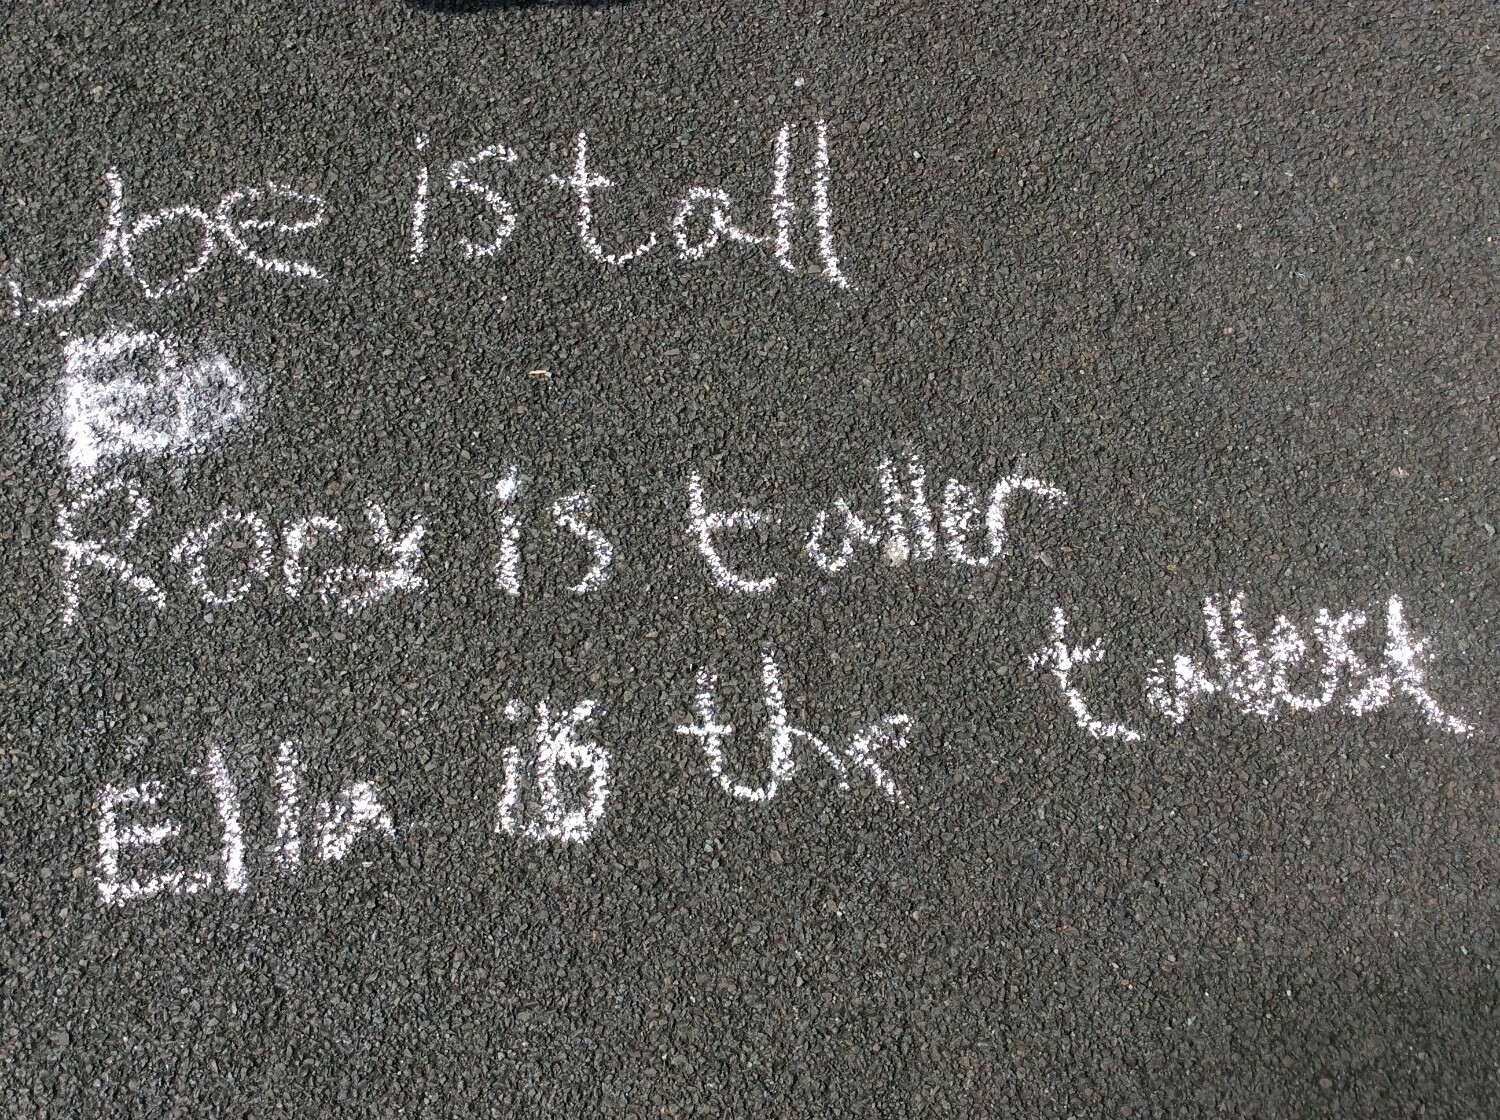 Joe is tall
Rory is taller
Ella is the tallest